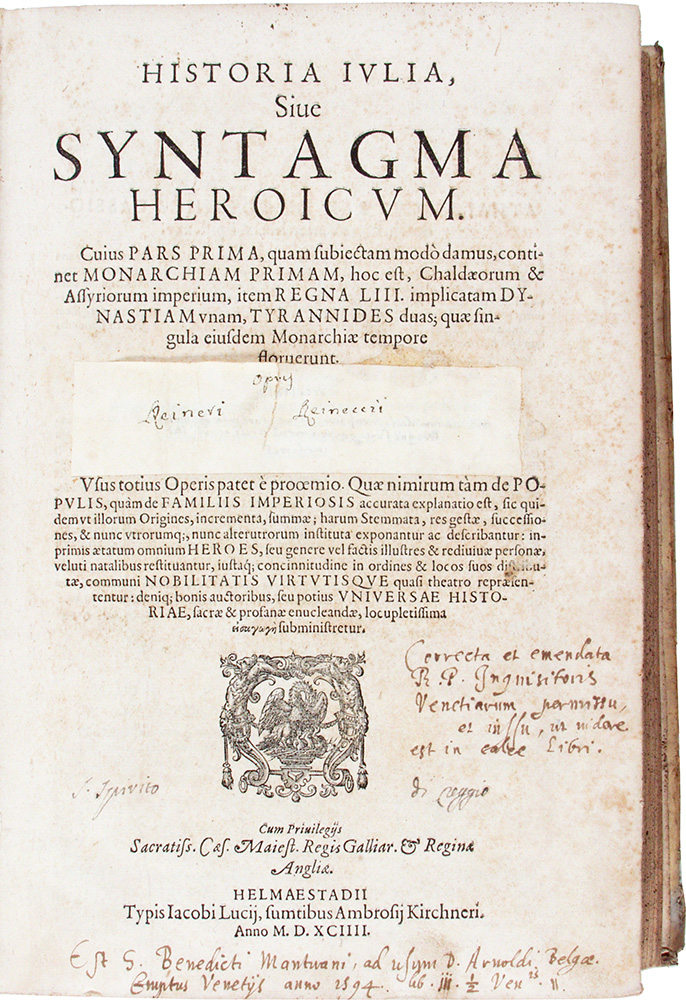 HISTORIA IVLIA,
Siue
SYNTAGMA
HEROICVM.
Cuius PARS PRIMA, quam subiectam modò damus, conti-
net MONARCHIAM PRIMAM, hoc est, Chaldæorum &
Assyriorum imperium, item REGNA LIII. implicatam DY-
NASTIAM vnam, TYRANNIDES duas; quæ sin-
gula eiusdem Monarchiæ tempore
floruerunt.
Reineri Reineccii
Vsus totius Operis patet è proœmio. Quæ nimirum tàm de PO-
PVLIS, quàm de FAMILIIS IMPERIOSIS accurata explanatio est, sic qui-
dem vt illorum Origines, incrementa, summæ; harum Stemmata, res gestæ, successio-
nes, & nunc vtrorumq;, nunc alterutrorum instituta exponantur ac describantur: in-
primis ætatum omnium HEROES, seu genere vel factis illustres & rediuiuæ personæ,
veluti natalibus restituantur, iustaq; concinnitudine in ordines & locos suos distribu-
tæ, communi NOBILITATIS VIRTVTISQVE quasi theatro repræsen-
tentur: deniq; bonis auctoribus, seu potius VNIVERSAE HISTO-
RIAE, sacræ & profanæ enucleandæ, locupletissima
εἰσαγωγὴ subministretur.
Correcta et emendata
R. P. Inquisitoris
Venetiarum permissu,
et iussu, ut videre
est in calce Libri.
S. Spirito di Reggio
Cum Priuilegijs
Sacratiss. Cæs. Maiest. Regis Galliar. & Reginæ
Angliæ.
HELMAESTADII
Typis Iacobi Lucij, sumtibus Ambrosij Kirchneri.
Anno M. D. XCIIII.
Est S. Benedicti Mantuani, ad usum D. Arnoldi Belgæ.
Emptus Venetijs anno 1594. lib. III. ½ Ven